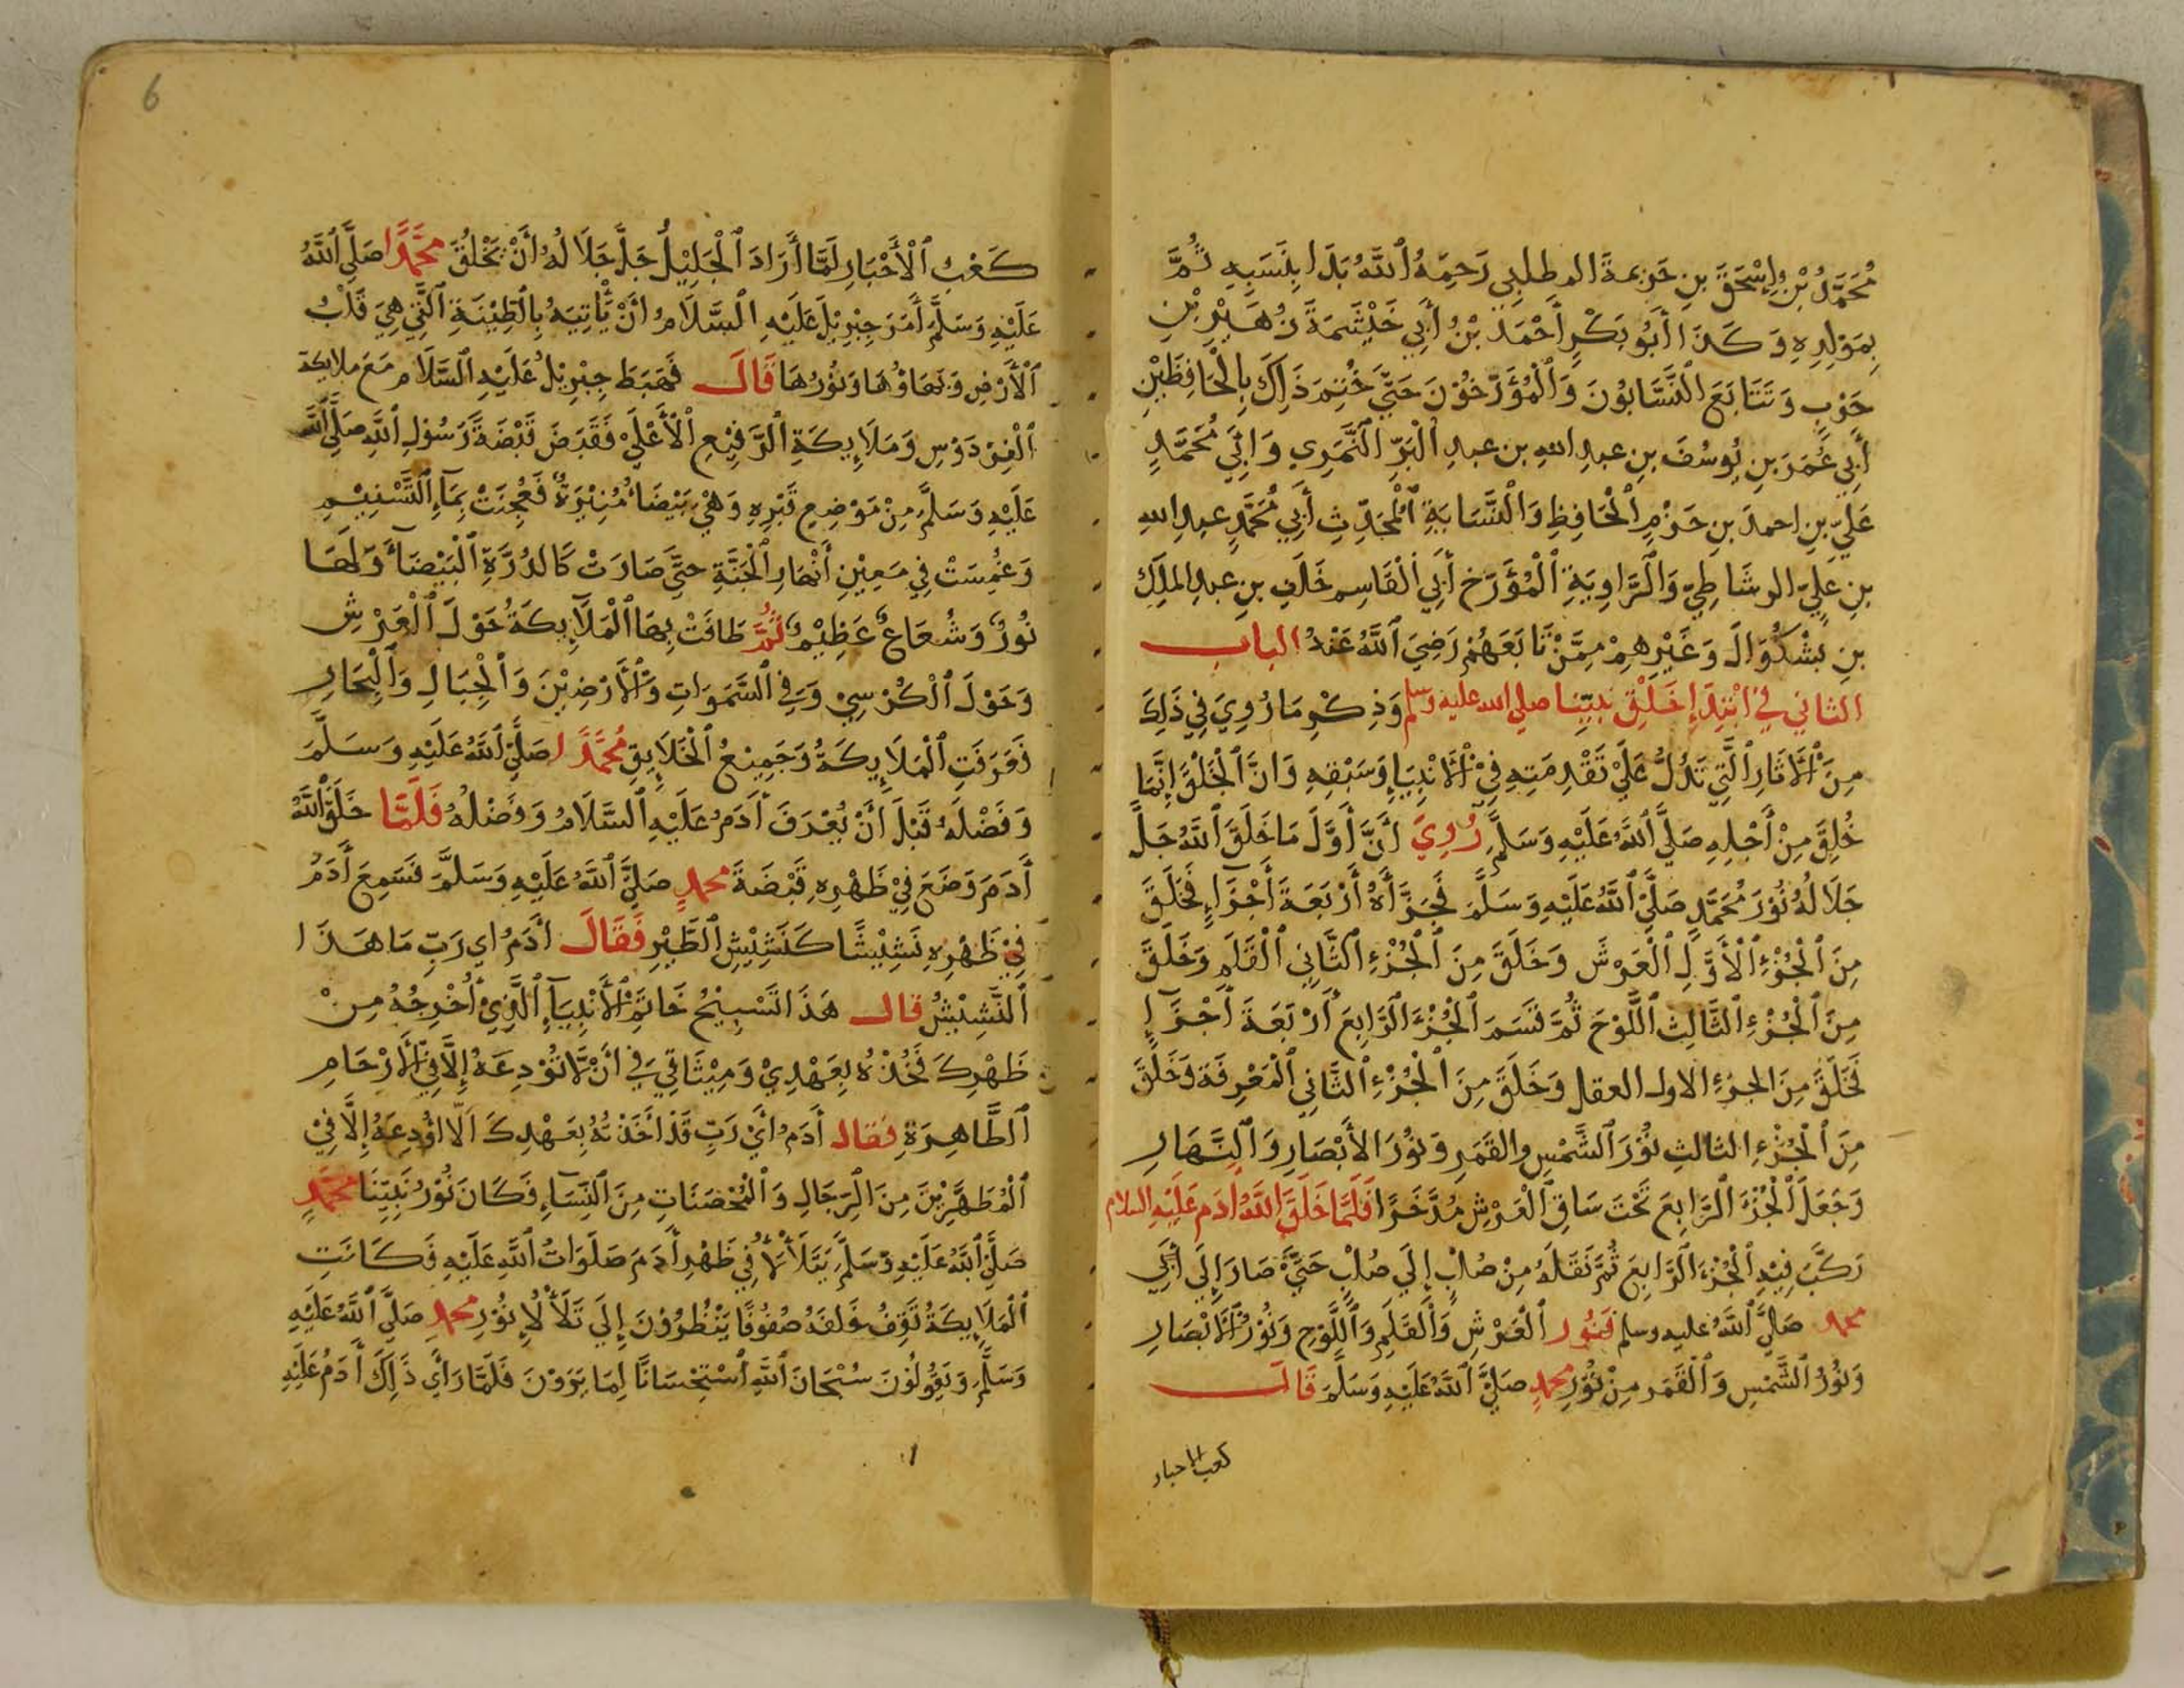 مُحَمَّدُ بْنُ إِسْحَقَ بنِ خزيمة المطلبي رَحِمَهُ اللَّهُ بَدَا بِنَسَبِهِ ثُمَّ
بِمَوْلِدِهِ وَكَذَا أَبُو بَكْرٍ أَحْمَدُ بْنُ أَبِي خَيْثَمَةَ زُهَيْرِ بْنِ
حَرْبٍ وَتَتَابَعَ النَّسَّابُونَ وَالْمُؤَرِّخُوْنَ حَتَّى خُتِمَ ذَلِكَ بِالْحَافِظَيْنِ
أَبِي عُمَرَ بنِ يُوسُفَ بنِ عبدِ اللهِ بن عبدِ الْبَرِّ النَّمَرِي وَابِي مُحَمَّدٍ
عَلِيِّ بنِ احمدَ بنِ حَزْمٍ الْحَافِظِ وَالنَّسَّابَةِ الْمُحَدِّثِ أَبِي مُحَمَّدٍ عبدِ اللهِ
بنِ عَلِيٍّ الرشَاطِيِّ وَالرَّاوِيَةِ الْمُؤَرِّخِ أَبِي الْقَاسِمِ خَلَفِ بنِ عبدِ الملِكِ
بنِ بَشْكُوَالَ وَغَيْرِهِمْ مِمَّنْ تَابَعَهُمْ رَضِيَ اللَّهُ عَنْهُ الباب
الثاني في ابْتِدَاءِ خَلْقِ نَبِيِّنا صلى الله عليه وسلم وَذِكْرِ مَا رُوِيَ فِي ذَلِكَ
مِنَ الْآثَارِ الَّتِي تَدُلُّ عَلَى تَقْدِمَتِهِ فِي الْأَنْبِيَاءِ وَسَبْقِهِ وَانَّ الْخَلْقَ إِنَّمَا
خُلِقَ مِنْ أَجْلِهِ صَلَّى اللَّهُ عَلَيْهِ وَسَلَّمَ رُوِيَ أَنَّ أَوَّلَ مَا خَلَقَ اللَّهُ جَلَّ
جَلَالُهُ نُوْرَ مُحَمَّدٍ صَلَّى اللَّهُ عَلَيْهِ وَسَلَّمَ فَجَزَّأَهُ أَرْبَعَةَ أَجْزَاءٍ فَخَلَقَ
مِنَ الْجُزْءِ الْأَوَّلِ الْعَرْشَ وَخَلَقَ مِنَ الْجُزْءِ الثَّانِي الْقَلَمَ وَخَلَقَ
مِنَ الْجُزْءِ الثَّالِثِ اللَّوْحَ ثُمَّ قَسَمَ الْجُزْءَ الرَّابِعَ أَرْبَعَةَ أَجْزَاءٍ
فَخَلَقَ مِنَ الجزءِ الاول العقل وَخَلَقَ مِنَ الْجُزْءِ الثَّانِي الْمَعْرِفَةَ وَخَلَقَ
مِنَ الْجُزْءِ الثالثِ نُوْرَ الشَّمْسِ والقَمَرِ وَنُوْرَ الأَبْصَارِ وَالنَّهَارِ
وَجَعَلَ الْجُزْءَ الرَّابِعَ تَحْتَ سَاقِ الْعَرْشِ مُدَّخَرًا فَلَمَّا خَلَقَ اللَّهُ ادَم عَلَيْهِ السلام
رَكَّبَ فِيْهِ الْجُزْءَ الرَّابِعَ ثُمَّ نَقَلَهُ مِنْ صُلْبٍ إِلَى صُلْبٍ حَتَّى صَارَ إِلَى أَبِي
محمد صَلَّى اللَّهُ عليه وسلم فَنُور الْعَرْشِ وَالْقَلَمِ وَاللَّوْحِ وَنُوْرُ الْأَبْصَارِ
وَنُوْرُ الشَّمْسِ وَالْقَمَر مِنْ نُوْرِ محمدٍ صَلَّى اللَّهُ عَلَيْهِ وَسَلَّمَ قَالَ
كعب الاحبار
6
كَعْبُ الْأَحْبَارِ لَمَّا أَرَادَ الْجَلِيْلُ جَلَّ جَلَالُهُ أَنْ يَخْلُقَ مُحَمَّدًا صَلَّى اللَّهُ
عَلَيْهِ وَسَلَّمَ أَمَرَ جِبْرِيْلَ عَلَيْهِ السَّلَامُ أَنْ يَأْتِيَهُ بِالطِّيْنَةِ الَّتِي هِيَ قَلْبُ
الْأَرْضِ وَبَهَاؤُهَا وَنُوْرُهَا قَالَ فَهَبَطَ جِبْرِيْلُ عَلَيْهِ السَّلَام مَعَ ملايكة
الْفِرْدَوْسِ وَمَلَايِكَةِ الرَّفِيْعِ الْأَعْلَى فَقَبَضَ قَبْضَةَ رَسُوْلِ اللَّهِ صَلَّى اللَّه
عَلَيْهِ وَسَلَّمَ مِنْ مَوْضِعِ قَبْرِهِ وَهْيَ بَيْضَاءُ مُنِيْرَةٌ فَعُجِنَتْ بِمَاءِ التَّسْنِيْمِ
وَغُمِسَتْ فِي مَعِيْنِ أَنْهَارِ الْجَنَّةِ حتَّى صَارَتْ كَالدُرَّةِ الْبَيْضَاءِ وَلَهَا
نُوْرٌ وَشُعَاعٌ عَظِيْمٌ ثُمَّ طَافَتْ بِهَا الْمَلَايِكَةُ حَوْلَ الْعَرْشِ
وَحَوْلَ الْكُرْسِيِّ وَفِي السَّمَوَاتِ وَالْأَرْضِيْنَ وَالْجِبَالِ وَالْبِحَارِ
فَعَرَفَتِ الْمَلَايِكَةُ وَجَمِيْعُ الْخَلَايِقِ مُحَمَّدًا صَلَّى اللَّهُ عَلَيْهِ وَسَلَّمَ
وَفَضْلَهُ قَبْلَ أَنْ يُعْرَفَ أَدَمُ عَلَيْهِ السَّلَامُ وَفَضْلُهُ فَلَمَّا خَلَقَ اللَّهُ
أَدَمَ وَضَعَ فِيْ ظَهْرِهِ قَبْضَةَ محمدٍ صَلَّى اللَّهُ عَلَيْهِ وَسَلَّمَ فَسَمِعَ أَدَمُ
فِيْ ظَهْرِهِ نَشِيْشًا كَنَشِيْشِ الطَّيْرِ فَقَالَ أدَمُ اي رَبِّ مَا هَذَا
النَّشِيْشُ قال هَذَا تَسْبِيْحُ خَاتَمِ الْأَنْبِيَاءِ الَّذِيْ أُخْرِجُهُ مِنْ
ظَهْرِكَ فَخُذْهُ بِعَهْدِيْ وَمِيْثَاقِي فِي أَنْ لَّا تُوْدِعَهُ إِلَّا فِي الْأَرْحَامِ
الطَّاهِرَةِ فقال أَدَمُ أَيْ رَبِّ قَدْ أَخَذْتُهُ بِعَهْدِكَ اَلَّا اُوْدِعَهُ إِلَّا فِيْ
الْمُطَهَّرِيْنَ مِنَ الرِّجَالِ وَالْمُحْصَنَاتِ مِنَ النِّسَاءِ فَكَانَ نُوْرُ نَبِيِّنَا مُحَمَّدٍ
صَلَّى اللَّهُ عَلَيْهِ وَسَلَّمَ يَتَلَأْلَأُ فِي ظَهْرِ أَدَمَ صَلَوَاتُ اللَّهِ عَلَيْهِ فَكَانَتِ
الْمَلَايِكَةُ تَقِفُ خَلْفَهُ صُفُوْفًا يَنْظُرُوْنَ إِلَى تَلَأْلُإِ نُوْرِ محمدٍ صَلَّى اللَّهُ عَلَيْهِ
وَسَلَّمَ وَيَقُوْلُوْنَ سُبْحَانَ اللَّهِ اسْتِحْسَانًا لِمَا يَرَوْنَ فَلَمَّا رَأَى ذَلِكَ أَدَمُ عَلَيْهِ